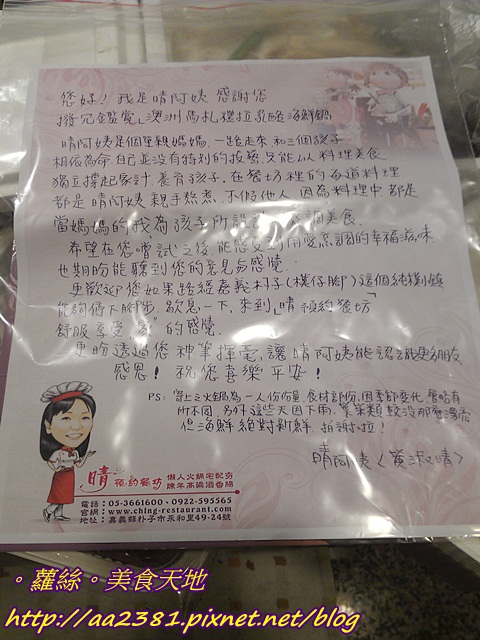 您好！我是晴阿姨 感謝您
撥冗鑑賞、澳洲馬札瑞拉乳酪海鮮鍋
晴阿姨是個單親媽媽,一路走來 和三個孩子
相依為命.自己並沒有特別的技藝.只能以料理美食
獨立撐起家計.養育孩子.在餐坊裡的每道料理
都是 晴阿姨 親手熬煮.不假他人 因為料理中都是
當媽媽的我為孩子所設 美食.
希望在您嚐試之後.能感受到用愛烹調的幸福滋味
也期盼能聽到您的意見與感覺.
更歡迎您如果路經嘉義朴子(樸仔腳)這個純樸鎮
能夠停下腳步.歇息一下,來到「晴預約餐坊」
舒服享受"家"的感覺.
更盼透過您 神筆揮毫,讓 晴阿姨能認識更多朋友
感恩! 祝您喜樂平安!
PS: 寄上之火鍋為一人份份量.食材部份.因季節變化.會略有
所不同.另外這些天因下雨.葉菜類較沒那麼漂亮
但海鮮絕對新鮮.拍謝啦!
晴阿姨<黃淑晴>
晴 預約餐坊 懶人火鍋宅配夯
陳年高粱酒香腸
電話：05-3661600、0922-595565
官網：www.ching-restaurant.com
地址：嘉義縣朴子市永和里49-24號
。蘿絲。美食天地
http://aa2381.pixnet.net/blog